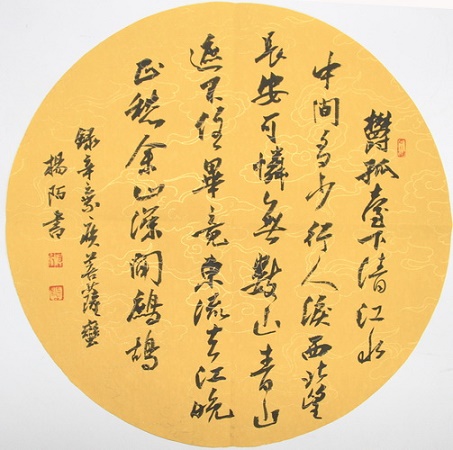 鬱孤臺下清江水
中間多少行人淚西北望
長安可憐無數山青山
遮不住畢竟東流去江晚
正愁余山深聞鷓鴣
錄辛棄疾菩薩蠻
楊陌書